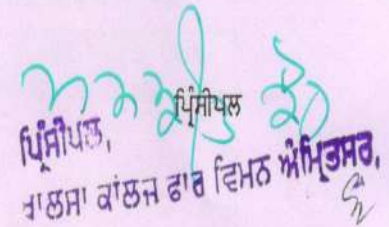 ਪ੍ਰਿੰਸੀਪਲ
ਪ੍ਰਿੰਸੀਪਲ,
ਖਾਲਸਾ ਕਾਲਜ ਫਾਰ ਵਿਮਨ ਅੰਮ੍ਰਿਤਸਰ,